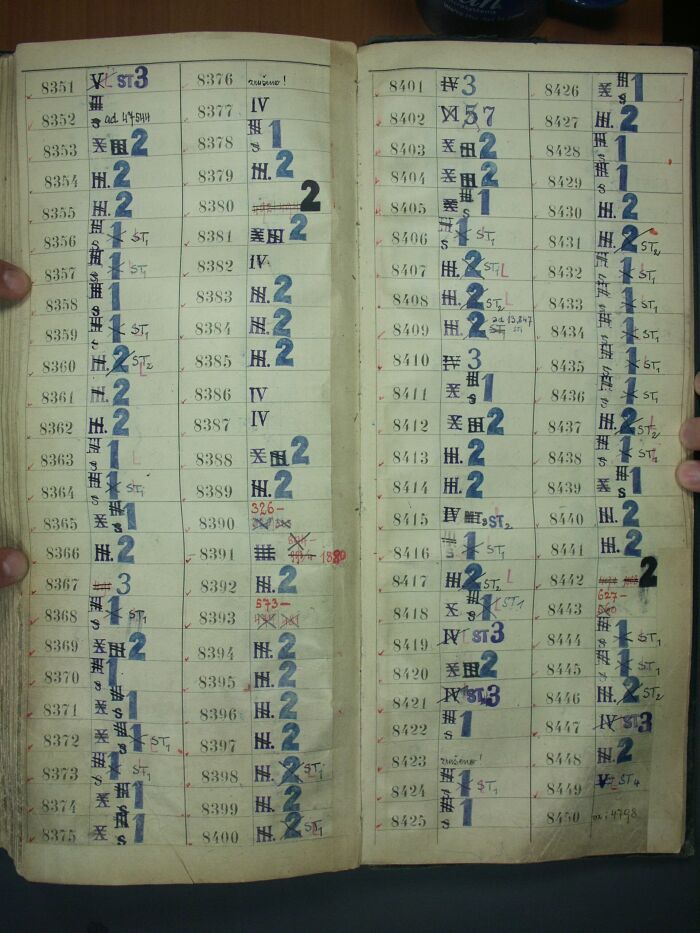 8351 V L ST3
8352 III s ad 47544
8353 X III 2
8354 III. 2
8355 III. 2
8356 III s 1 ST1
8357 III s 1 ST1
8358 III s 1
8359 III s 1 ST1
8360 III. 2 ST2 L
8361 III. 2
8362 III. 2
8363 III s 1 L
8364 III s 1 ST1
8365 X III s 1
8366 III. 2
8367 3
8368 III s 1 ST1
8369 X III 2
8370 III s 1
8371 X III s 1
8372 X III s 1 ST1
8373 III s 1 ST1
8374 X III s 1
8375 X III s 1
8376 zrušeno!
8377 IV
8378 III s 1
8379 III. 2
8380 2
8381 X III 2
8382 IV
8383 III. 2
8384 III. 2
8385 III. 2
8386 IV
8387 IV
8388 X III 2
8389 III. 2
8390 326-
8391 III 1880
8392 III. 2
8393 573-
8394 III. 2
8395 III. 2
8396 III. 2
8397 III. 2
8398 III. 2 ST1
8399 III. 2
8400 III. 2 ST1
8401 IV 3
8402 XI 57
8403 X III 2
8404 X III 2
8405 X III s 1
8406 III s 1 ST1
8407 III. 2 ST1 L
8408 III. 2 ST2 L
8409 III. 2 ad 13.847 ST1
8410 IV 3
8411 X III s 1
8412 X III 2
8413 III. 2
8414 III. 2
8415 IV III s ST2
8416 III s 1 ST1
8417 III. 2 ST2 L
8418 X III s 1 L ST1
8419 IV L ST3
8420 X III 2
8421 IV ST3
8422 III s 1
8423 zrušeno!
8424 III s 1 ST1
8425 III s 1
8426 X III s 1
8427 III. 2
8428 III s 1
8429 III s 1
8430 III. 2
8431 III. 2 ST2
8432 III s 1 ST1
8433 III s 1 ST1
8434 III s 1 ST1
8435 III s 1 ST1
8436 III s 1 ST1
8437 III. 2 L ST2
8438 III s 1 ST1
8439 X III s 1
8440 III. 2
8441 III. 2
8442 2
8443 627-
8444 III s 1 ST1
8445 III s 1 ST1
8446 III. 2 ST2
8447 IV ST3
8448 III. 2
8449 V L ST4
8450 4798